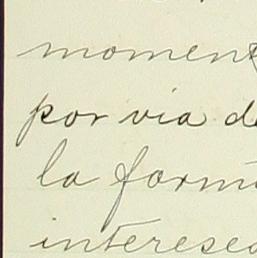 moment
por via de
la form
interese